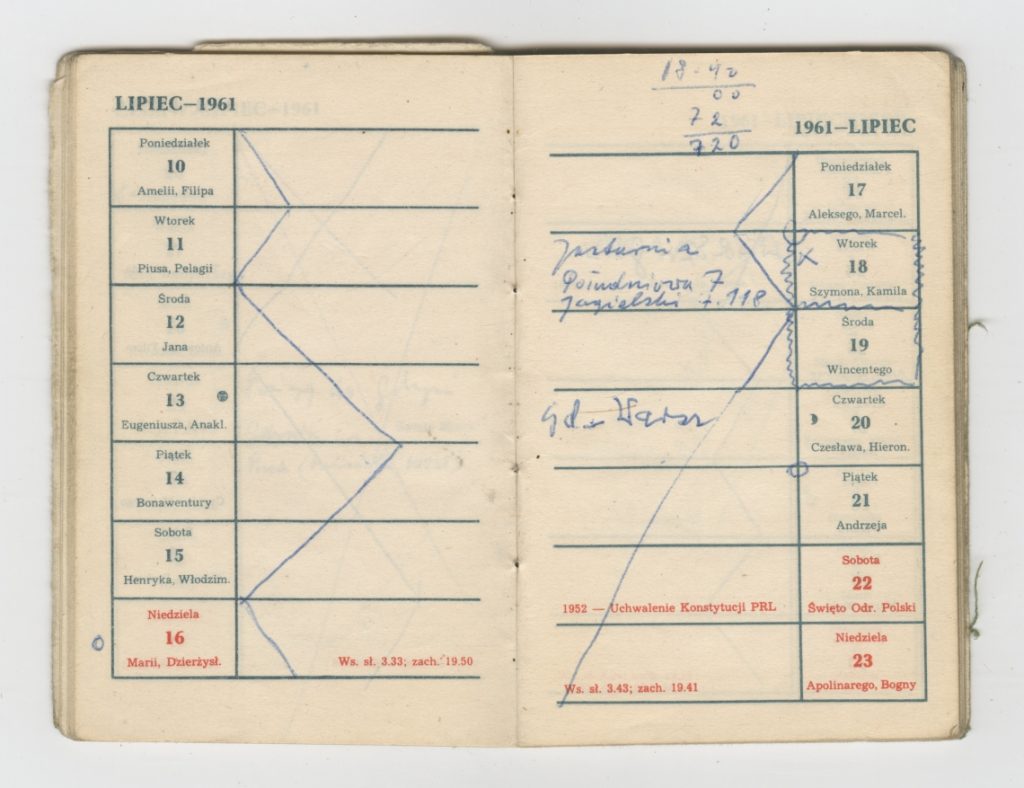 LIPIEC—1961
Poniedziałek
10
Amelii, Filipa
Wtorek
11
Piusa, Pelagii
Środa
12
Jana
Czwartek
13
Eugeniusza, Anakl.
Piątek
14
Bonawentury
Sobota
15
Henryka, Włodzim.
Niedziela
16
Marii, Dzierżysł.
Ws. sł. 3.33; zach. 19.50
18.40
00
72
720
1961—LIPIEC
Poniedziałek
17
Aleksego, Marcel.
Jastarnia
Południowa 7
Jagielski t. 118
Wtorek
18
Szymona, Kamila
Środa
19
Wincentego
Gd-Warsz
Czwartek
20
Czesława, Hieron.
Piątek
21
Andrzeja
1952 — Uchwalenie Konstytucji PRL
Sobota
22
Święto Odr. Polski
Ws. sł. 3.43; zach. 19.41
Niedziela
23
Apolinarego, Bogny